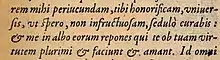 rem mihi periucundam, tibi honorificam, vniuer-
sis, vt spero, non infructuosam, sedulò curabis:
& me in albo eorum repones qui te ob tuam vir-
tutem plurimi & faciunt & amant. Id omni